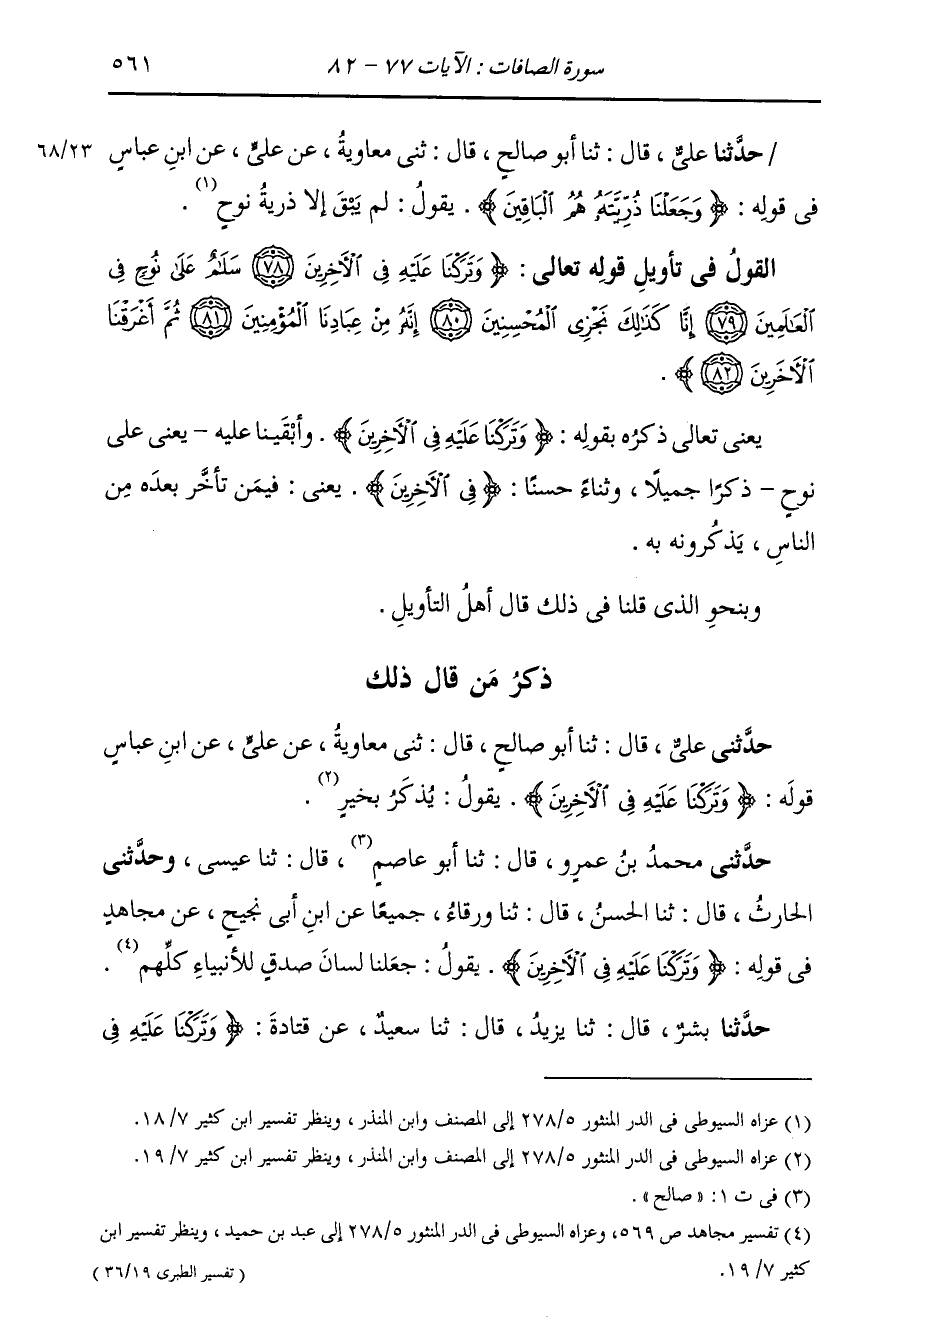 سورة الصافات : الآيات ٧٧ - ٨٢ ٥٦١
/ حدَّثنا علىٌّ ، قال : ثنا أبو صالحٍ ، قال : ثنى معاويةُ ، عن علىٍّ ، عن ابنِ عباسٍ ٦٨/٢٣
فى قولِه : ﴿ وَجَعَلْنَا ذُرِّيَّتَهُۥ هُمُ ٱلْبَاقِينَ ﴾ . يقولُ : لم يَبْقَ إلا ذريةُ نوحٍ(١) .
القولُ فى تأويلِ قولِه تعالى : ﴿ وَتَرَكْنَا عَلَيْهِ فِى ٱلْآخِرِينَ ﴿٧٨﴾ سَلَٰمٌ عَلَىٰ نُوحٍ فِى
ٱلْعَٰلَمِينَ ﴿٧٩﴾ إِنَّا كَذَٰلِكَ نَجْزِى ٱلْمُحْسِنِينَ ﴿٨٠﴾ إِنَّهُۥ مِنْ عِبَادِنَا ٱلْمُؤْمِنِينَ ﴿٨١﴾ ثُمَّ أَغْرَقْنَا
ٱلْآخَرِينَ ﴿٨٢﴾ ﴾ .
يعنى تعالى ذكرُه بقولِه : ﴿ وَتَرَكْنَا عَلَيْهِ فِى ٱلْآخِرِينَ ﴾ . وأبْقَينا عليه - يعنى على
نوحٍ - ذكرًا جميلًا ، وثناءً حسنًا : ﴿ فِى ٱلْآخِرِينَ ﴾ . يعنى : فيمَن تأخَّر بعدَه مِن
الناسِ ، يَذكُرونه به .
وبنحوِ الذى قلنا فى ذلك قال أهلُ التأويلِ .
ذكرُ مَن قال ذلك
حدَّثنى علىٌّ ، قال : ثنا أبو صالحٍ ، قال : ثنى معاويةُ ، عن علىٍّ ، عن ابنِ عباسٍ
قولَه : ﴿ وَتَرَكْنَا عَلَيْهِ فِى ٱلْآخِرِينَ ﴾ . يقولُ : يُذكَرُ بخيرٍ(٢) .
حدَّثنى محمدُ بنُ عمرٍو ، قال : ثنا أبو عاصمٍ(٣) ، قال : ثنا عيسى ، وحدَّثنى
الحارثُ ، قال : ثنا الحسنُ ، قال : ثنا ورقاءُ ، جميعًا عن ابنِ أبى نجيحٍ ، عن مجاهدٍ
فى قولِه : ﴿ وَتَرَكْنَا عَلَيْهِ فِى ٱلْآخِرِينَ ﴾ . يقولُ : جعَلنا لسانَ صدقٍ للأنبياءِ كلِّهم(٤) .
حدَّثنا بشرٌ ، قال : ثنا يزيدُ ، قال : ثنا سعيدٌ ، عن قتادةَ : ﴿ وَتَرَكْنَا عَلَيْهِ فِى
(١) عزاه السيوطى فى الدر المنثور ٢٧٨/٥ إلى المصنف وابن المنذر ، وينظر تفسير ابن كثير ١٨/٧ .
(٢) عزاه السيوطى فى الدر المنثور ٢٧٨/٥ إلى المصنف وابن المنذر ، وينظر تفسير ابن كثير ١٩/٧ .
(٣) فى ت ١ : « صالح » .
(٤) تفسير مجاهد ص ٥٦٩، وعزاه السيوطى فى الدر المنثور ٢٧٨/٥ إلى عبد بن حميد ، وينظر تفسير ابن
كثير ١٩/٧ . ( تفسير الطبرى ٣٦/١٩ )